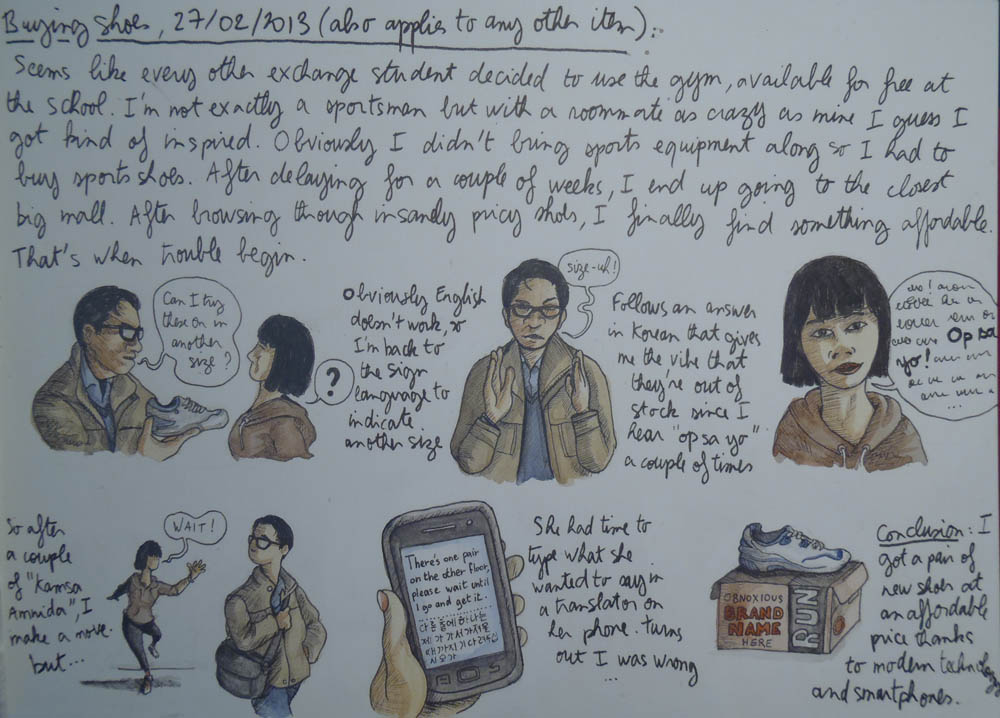 Buying shoes, 27/02/2013 (also applies to any other item):
Seems like every other exchange student decided to use the gym, available for free at
the school. I'm not exactly a sportsman but with a roommate as crazy as mine I guess I
got kind of inspired. Obviously I didn't bring sports equipment along so I had to
buy sports shoes. After delaying for a couple of weeks, I end up going to the closest
big mall. After browsing through insanely pricy shots, I finally find something affordable.
That's when trouble begin.
Can I try
these on in
another
size?
?
Obviously English
doesn't work, so
I'm back to
the sign
language to
indicate
another size
size-uh!
Follows an answer
in Korean that gives
me the vibe that
they're out of
stock since I
hear "op sa yo"
a couple of times
Op sa
yo!
...
So after
a couple
of "Kamsa
Amnida", I
make a move.
but...
WAIT!
There's one pair
on the other floor,
please wait until
I go and get it.
다른 층에 하나는
제가 가서 가져올
때까지 기다려주십
시오가
She had time to
type what she
wanted to say in
a translator on
her phone. turns
out I was wrong
...
OBNOXIOUS
BRAND
NAME
HERE
RUN
Conclusion: I
got a pair of
new shoes at
an affordable
price thanks
to modern technology
and smartphones.